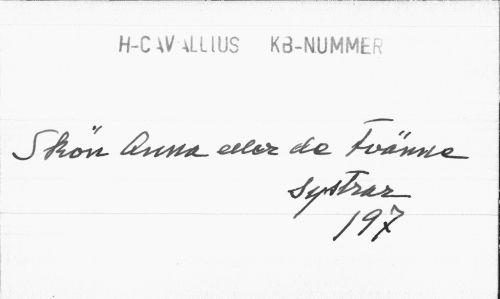 H-CAVALLIUS KB-NUMMER
Skön Anna eller de Tvänne
systrar
197